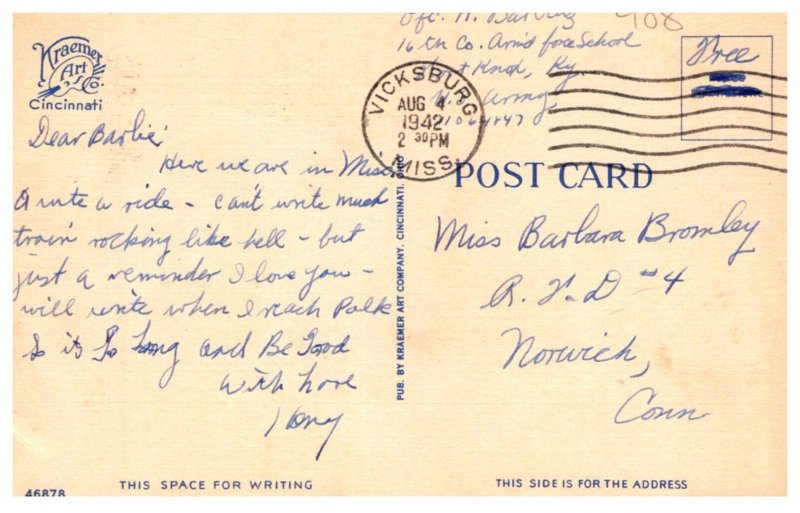 Kraemer
Art
Co.
Cincinnati
Dear Barbie'
Here we are in Miss.
Quite a ride - can't write much
train rocking like hell - but
just a reminder I love you -
will write when I reach Polk
So its So Long and Be Good
With Love
46878
THIS SPACE FOR WRITING
PUB. BY KRAEMER ART COMPANY, CINCINNATI, OHIO
Pfc. H.
908
16th Co. Arm'd force School
Fort Knox, Ky.
U.S. Army
VICKSBURG
AUG 4
1942
2 30 PM
MISS.
Free
POST CARD
Miss Barbara Bromley
R. F. D #4
Norwich,
Conn
THIS SIDE IS FOR THE ADDRESS